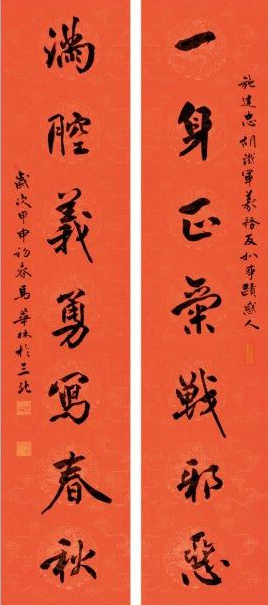 施建忠胡鐵軍義務反扒事蹟感人
一身正氣戰邪惡
滿腔義勇寫春秋
歲次甲申初春馬華林於三北